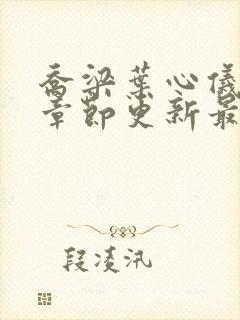 乔梁叶心仪
章节更新最
段凌汛